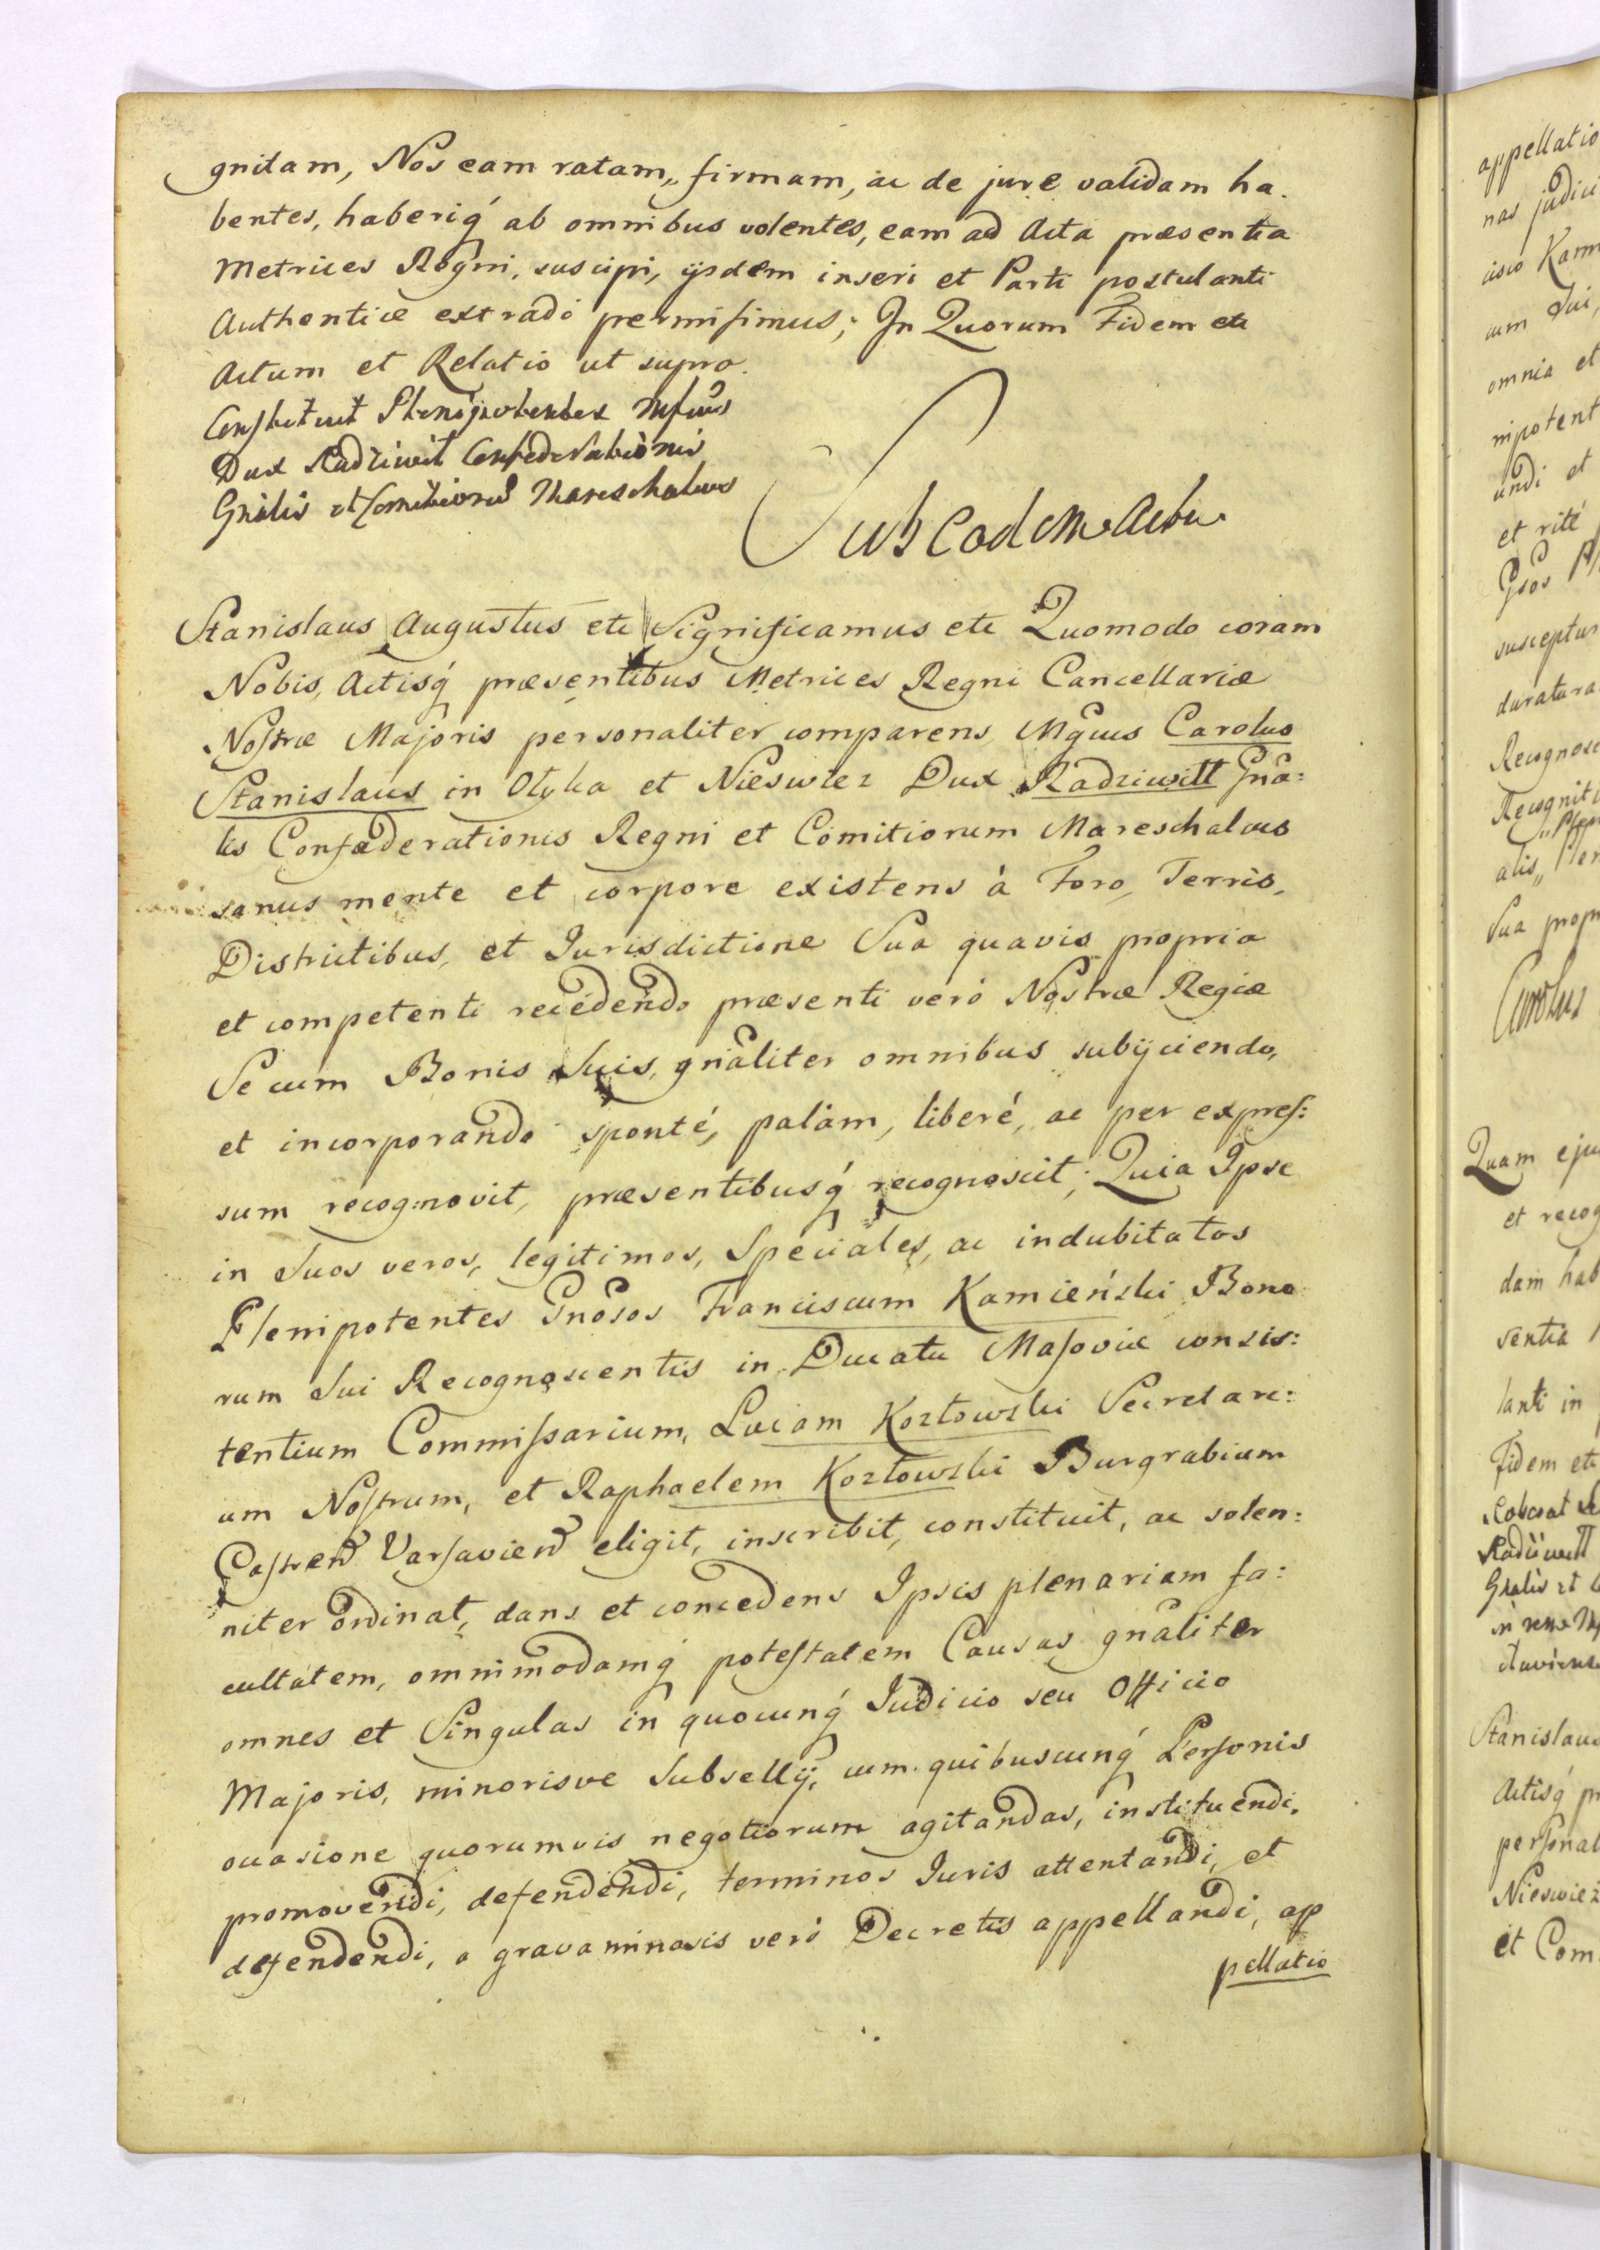 gnitam, Nos eam ratam, firmam, ac de jure validam ha.
bentes, haberiq́ ab omnibus volentes, eam ad Acta præsentia
Metrices Regni, suscipi, ijsdem inseri et Parti postulanti
Authentice extradi permisimus; In Quorum Fidem etc
Actum et Relatio ut supra.
Constituit Plenipotentes
Dux Radziwił Confederationis
Gńalis et Comitiorum Mareschalcus
Sub eodem Actu
Stanislaus Augustus etc Significamus etc Quomodo coram
Nobis, Actisq́ præsentibus Metrices Regni Cancellariæ
Nostræ Majoris personaliter comparens Mgcus Carolus
Stanislaus in Ołyka et Nieswiez Dux Radziwiłł Gńa:
lis Confæderationis Regni et Comitiorum Mareschalcus
sanus mente et corpore existens à Foro, Terris,
Districtibus, et Jurisdictione Sua quavis propria
et competenti recedendo præsenti verò Nostræ Regiæ
Se cum Bonis Suis, gńaliter omnibus subijciendo,
et incorporando sponté, palàm, liberé, ac per expres:
sum recog:novit, præsentibusq́ recognoscit; Quia Ipse
in Suos veros, legitimos, Speciales, ac indubitatos
Plenipotentes Gnosos Franciscum Kamieński Bono
rum Sui Recognoscentis in Ducatu Masoviæ consis:
tentium Commissarium, Lucam Kozłowski Secretari:
um Nostrum, et Raphaelem Kozłowski Burgrabium
Castren Varsavien eligit, inscribit, constituit, ac solen:
niter ordinat, dans et concedens Ipsis plenariam fa:
cultatem, omnimodamq́ potestatem Causas gńaliter
omnes et Singulas in quocunq́ Judicio seu Officio
Majoris, minorisve Subsellij, cum quibuscunq́ Personis
occasione quorumvis negotiorum agitandas, instituendi,
promovendi, defendendi, terminos Juris attentandi, et
defendendi, a gravaminosis verò Decretis appellandi, ap
pellatio
appellatio
nas judici
omnia et
nipotent
andi et
et rité
susceptur
duratura
Recognosc
Recognit
alis,
Sua prop
Carolus
Quam eju
et recog
dam hab
sentia
lanti in
Fidem etc
Radziwiłł
Stanislaus
Actisq́ pr
personal
Nieswiez
et Com